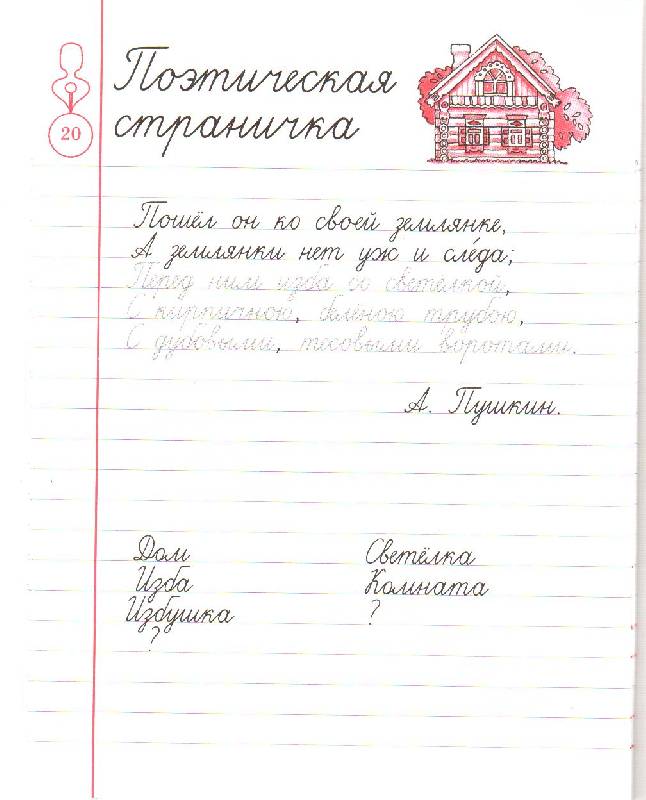 Поэтическая
страничка
20
Пошёл он ко своей землянке,
А землянки нет уж и сле́да;
Перед ним изба со светелкой,
С кирпичною, беленою трубою,
С дубовыми, тесовыми воротами.
А. Пушкин.
Дом
Изба
Избушка
?
Светёлка
Комната
?